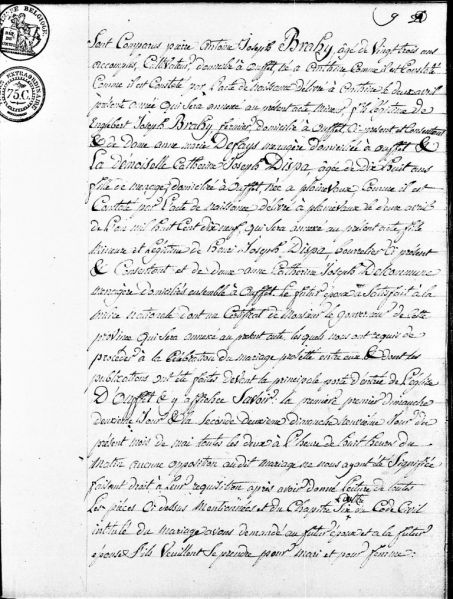 9
75 C.
Sont Comparus pierre Antoine Joseph Brahy, âgé de Vingt trois ans
accomplis, Cultivateur, domicilié à Ouffet, né à
Comme il est Constaté par l'acte de naissance délivré à le deux avril
présent année qui sera annexé au présent acte, fils légitime de
Engelbert Joseph Brahy fermier, domicilié à Ouffet, Ci présent et Consentant
& de Dame anne marie Defays ménagère domiciliée à Ouffet &
La Demoiselle Catherine Joseph Dispa, âgée de Dix huit ans
fille de ménage, domiciliée à Ouffet, née à plainevaux Comme il est
Constaté par l'acte de naissance délivré à plainevaux le deux avril
de l'an mil huit Cent dix neuf, qui sera annexé au présent acte, fille
mineure et légitime de henri Joseph Dispa, Ci présent
& Consentant et de dame anne Catherine Joseph Delcommune
ménagère domiciliés ensemble à Ouffet. Le futur époux a Satisfait à la
milice nationale dont un Certificat de Monsieur le Gouverneur de Cette
province qui sera annexé au présent acte, lesquels nous ont requis de
procéder à la Célébration du mariage projetté entre eux & dont les
publications ont été faites devant la principale porte d'entrée de l'église
D'Ouffet & y affichée Savoir la première premier dimanche
deuxième Jour & la Seconde Deuxième dimanche neuvième Jour du
présent mois de mai toutes les deux à l'heure de huit heures du
Matin aucune opposition audit mariage ne nous ayant été Signifiée
faisant droit à leur requisition après avoir donné lecture de toutes
les pièces Ci dessus Mentionnées et du Chapitre Six du Code Civil
intitulé du mariage avons demandé au futur époux et a la future
épouse S'ils Veuillent Se prendre pour mari et pour femme: